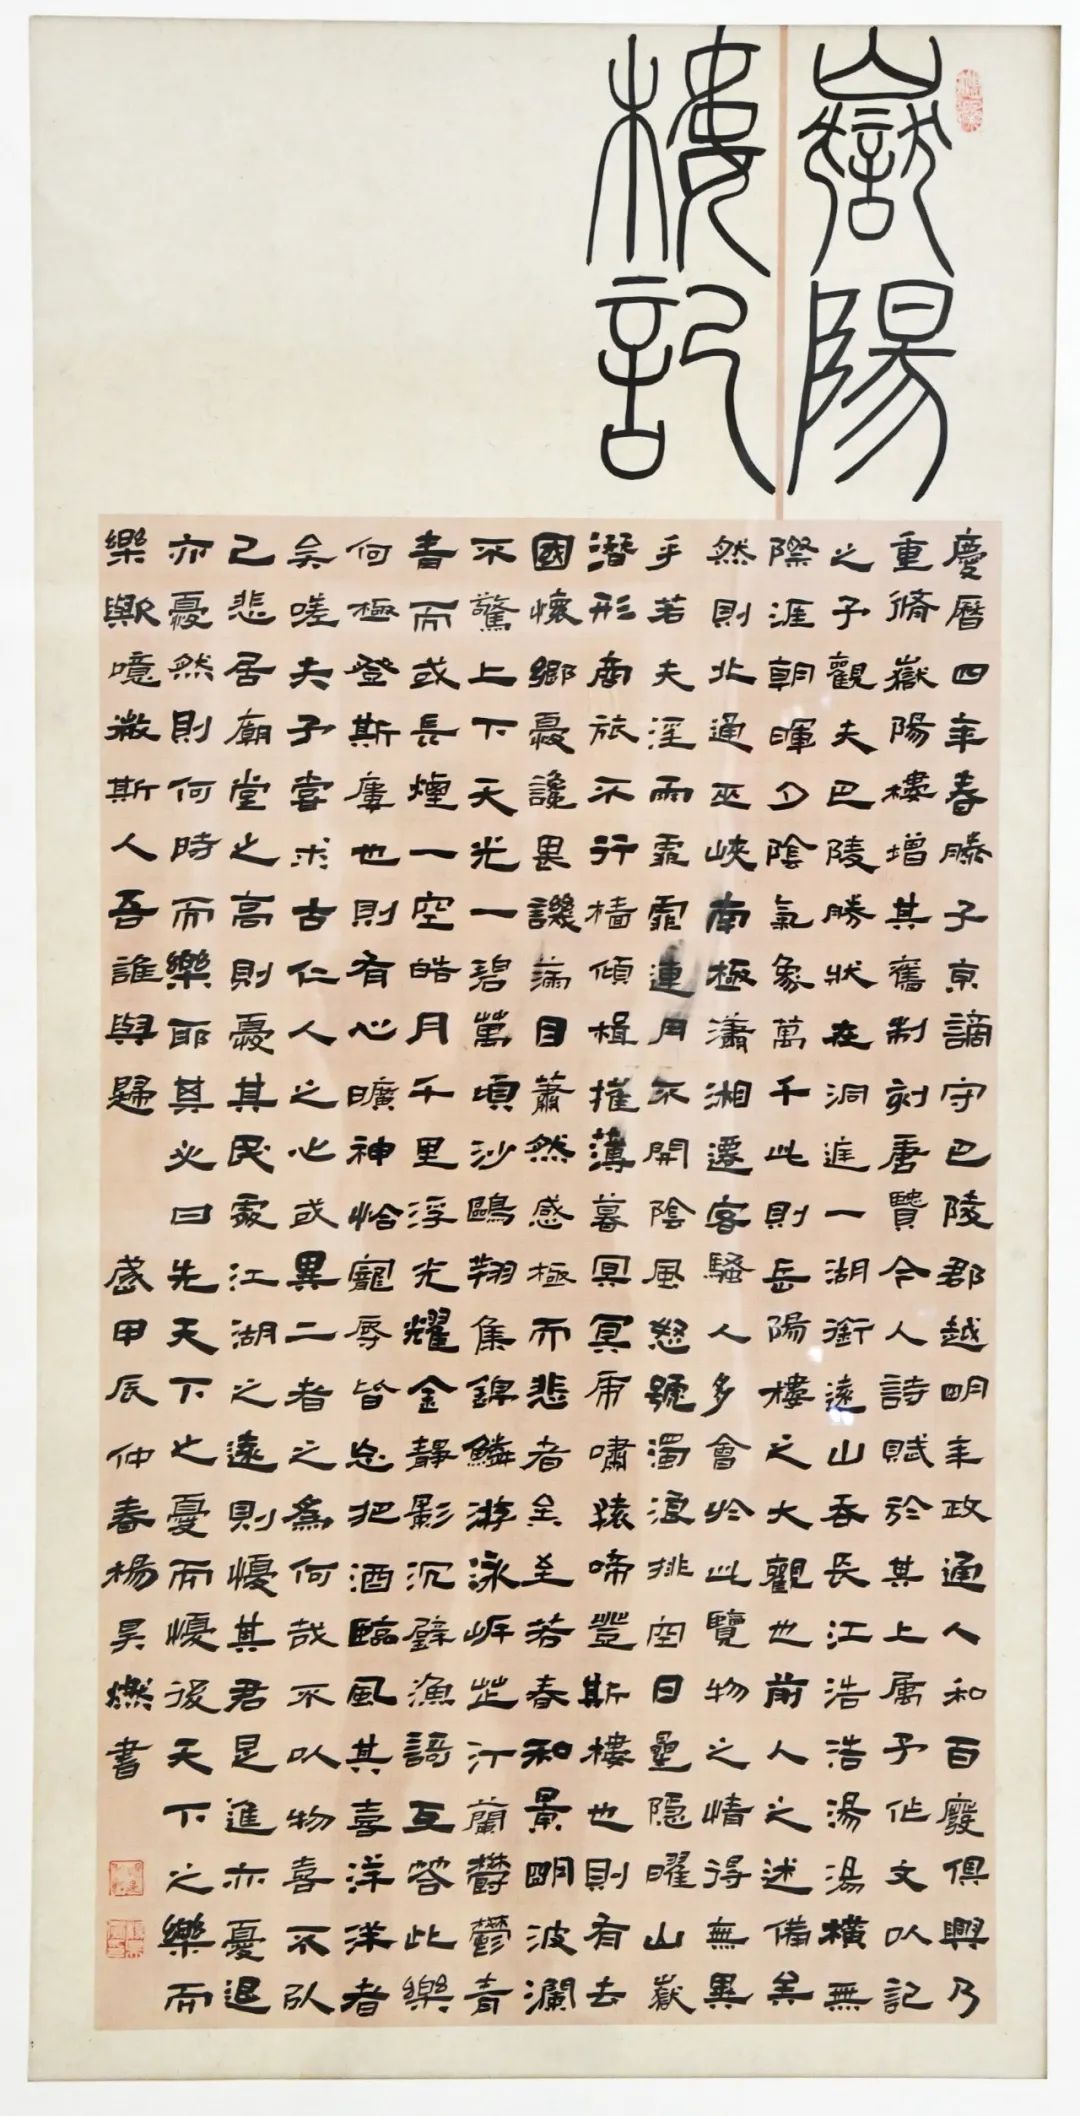 嶽陽
樓記
慶曆四年春滕子京謫守巴陵郡越明年政通人和百廢俱興乃
重脩嶽陽樓增其舊制刻唐賢今人詩賦於其上屬予作文以記
之予觀夫巴陵勝狀在洞庭一湖銜遠山吞長江浩浩湯湯橫無
際涯朝暉夕陰氣象萬千此則岳陽樓之大觀也前人之述備矣
然則北通巫峽南極瀟湘遷客騷人多會於此覽物之情得無異
乎若夫淫雨霏霏連月不開陰風怒號濁浪排空日星隱曜山嶽
潛形商旅不行檣傾楫摧薄暮冥冥虎嘯猿啼登斯樓也則有去
國懷鄉憂讒畏譏滿目蕭然感極而悲者矣至若春和景明波瀾
不驚上下天光一碧萬頃沙鷗翔集錦鱗游泳岸芷汀蘭鬱鬱青
青而或長煙一空皓月千里浮光耀金靜影沉璧漁謌互答此樂
何極登斯樓也則有心曠神怡寵辱皆忘把酒臨風其喜洋洋者
矣嗟夫予嘗求古仁人之心或異二者之為何哉不以物喜不以
己悲居廟堂之高則憂其民處江湖之遠則憂其君是進亦憂退
亦憂然則何時而樂耶其必曰先天下之憂而憂後天下之樂而
樂歟噫微斯人吾誰與歸 歲甲辰仲春楊昊燃書